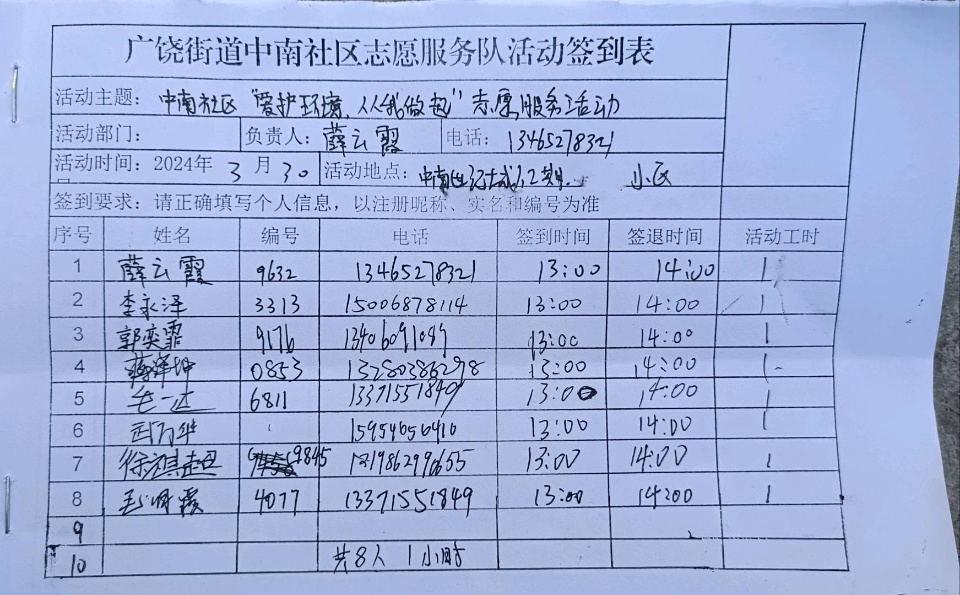 广饶街道中南社区志愿服务队活动签到表
活动主题： 中南社区 "爱护环境，人人我做起" 志愿服务活动
活动部门： 负责人：薛云霞 电话：13465278321
活动时间：2024年 3 月 30 活动地点：中南世纪城1.2期. 小区
签到要求：请正确填写个人信息，以注册昵称、实名和编号为准
序号 姓名 编号 电话 签到时间 签退时间 活动工时
1 薛云霞 9632 13465278321 13:00 14:00 1
2 李永泽 3313 15006878114 13:00 14:00 1
3 郭奕霏 9176 13:00 14:00 1
4 0853 13:00 14:00 1
5 6811 13:00 14:00 1
6 13:00 14:00 1
7 徐祺超 9845 13:00 14:00 1
8 4077 13371551849 13:00 14:00 1
9
10 共8人 1小时